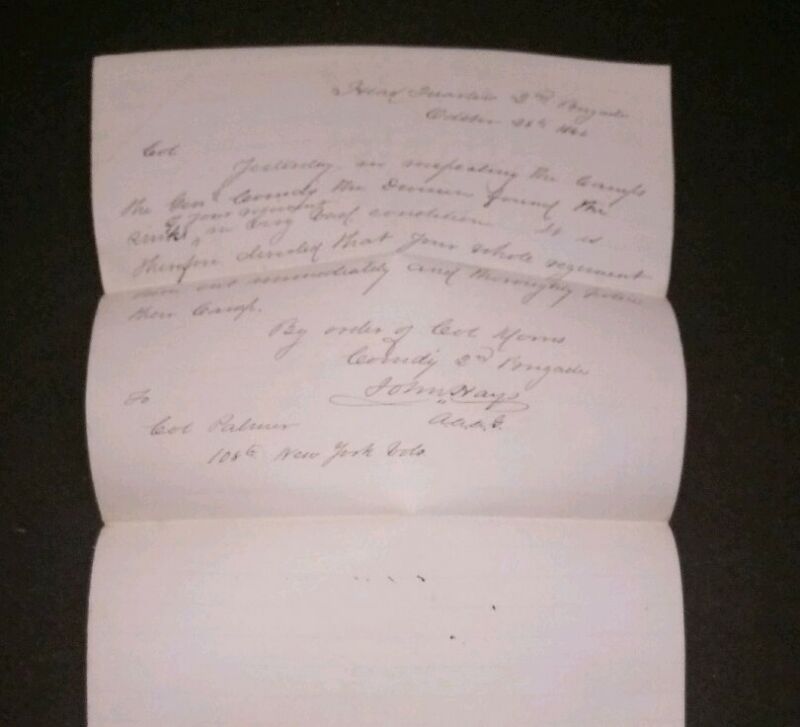 Head Quarters 2nd Brigade
October 26th 186
Col
Yesterday in inspecting the Camps
the Genl Comdg the Division found the
sinks of your regiment in very bad condition. It is
therefore directed that your whole regiment
turn out immediately and thoroughly police
their Camp.
By order of Col Morris
Comdg 2nd Brigade
John Hays
A.A.A.G.
To
Col Palmer
108th New York Vols